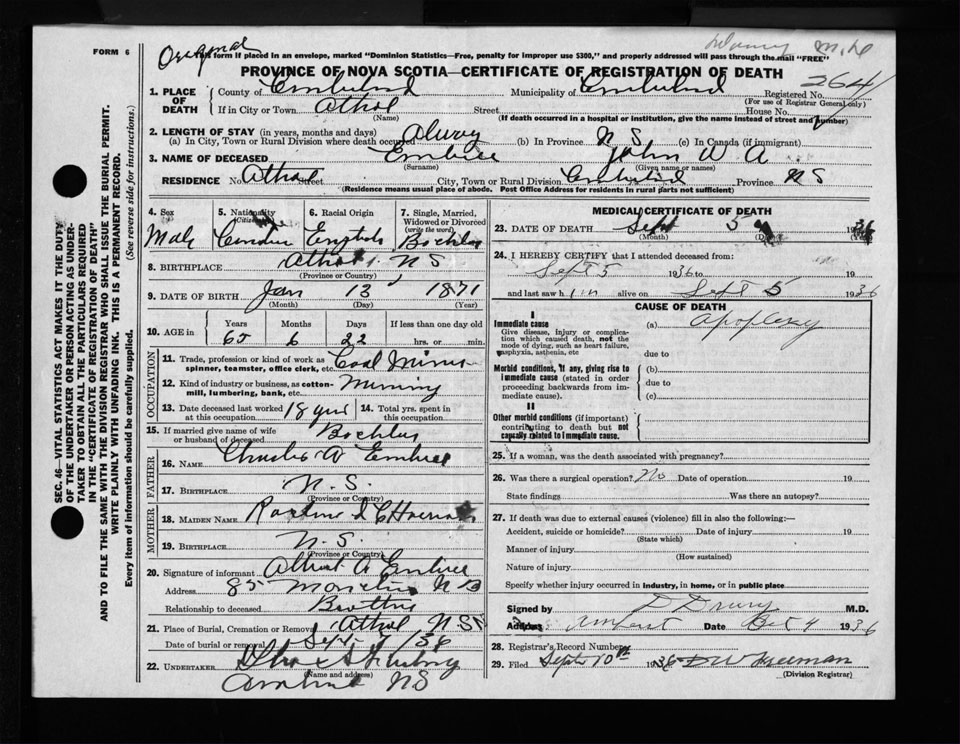 FORM 6
Original
This form if placed in an envelope, marked "Dominion Statistics—Free, penalty for improper use $300," and properly addressed will pass through the mail "FREE"
PROVINCE OF NOVA SCOTIA—CERTIFICATE OF REGISTRATION OF DEATH
264
1. PLACE OF DEATH County of Cumberland Municipality of Cumberland Registered No.
(For use of Registrar General only)
If in City or Town Athol Street House No.
(Name) (If death occurred in a hospital or institution, give the name instead of street and number)
2. LENGTH OF STAY (in years, months and days)
(a) In City, Town or Rural Division where death occurred (b) In Province N S (c) In Canada (if immigrant)
3. NAME OF DECEASED Embree John W A
(Surname) (Given name or names)
RESIDENCE No. Athol Street City, Town or Rural Division Cumberland Province N S
(Residence means usual place of abode. Post Office Address for residents in rural parts not sufficient)
4. Sex Male
5. Nationality (Citizenship)
6. Racial Origin English
7. Single, Married, Widowed or Divorced (write the word)
8. BIRTHPLACE Athol N S
(Province or Country)
9. DATE OF BIRTH Jan 13 1871
(Month) (Day) (Year)
10. AGE in Years Months Days If less than one day old
65 6 22 hrs. or min.
OCCUPATION
11. Trade, profession or kind of work as spinner, teamster, office clerk, etc. Coal Miner
12. Kind of industry or business, as cotton-mill, lumbering, bank, etc. Mining
13. Date deceased last worked at this occupation 18 yrs
14. Total yrs. spent in this occupation
15. If married give name of wife or husband of deceased
FATHER
16. NAME Charles W Embree
17. BIRTHPLACE N. S.
(Province or Country)
MOTHER
18. MAIDEN NAME
19. BIRTHPLACE N. S.
(Province or Country)
20. Signature of informant Embree
Address 85 N B
Relationship to deceased Brother
21. Place of Burial, Cremation or Removal Athol N S
Date of burial or removal Sept 7 / 36
22. UNDERTAKER
(Name and address)
Amherst NS
MEDICAL CERTIFICATE OF DEATH
23. DATE OF DEATH Sept 5 1936
(Month) (Day)
24. I HEREBY CERTIFY that I attended deceased from:
Sept 5 1936 to 19
and last saw him alive on Sept 5 1936
CAUSE OF DEATH
I
Immediate cause
Give disease, injury or complication which caused death, not the mode of dying, such as heart failure, asphyxia, asthenia, etc
(a) Apoplexy
due to
Morbid conditions, if any, giving rise to immediate cause (stated in order proceeding backwards from immediate cause).
(b)
due to
(c)
II
Other morbid conditions (if important) contributing to death but not causally related to immediate cause.
25. If a woman, was the death associated with pregnancy?
26. Was there a surgical operation? No Date of operation 19
State findings Was there an autopsy?
27. If death was due to external causes (violence) fill in also the following:—
Accident, suicide or homicide? Date of injury 19
(State which)
Manner of injury
(How sustained)
Nature of injury
Specify whether injury occurred in industry, in home, or in public place
Signed by D Drury M.D.
Address Amherst Date Oct 4 1936
28. Registrar's Record Number
29. Filed Sept 10th 1936 D W Freeman
(Division Registrar)
SEC. 46—VITAL STATISTICS ACT MAKES IT THE DUTY
OF THE UNDERTAKER OR PERSON ACTING AS UNDER-
TAKER TO OBTAIN ALL THE PARTICULARS REQUIRED
IN THE "CERTIFICATE OF REGISTRATION OF DEATH"
AND TO FILE THE SAME WITH THE DIVISION REGISTRAR WHO SHALL ISSUE THE BURIAL PERMIT.
WRITE PLAINLY WITH UNFADING INK. THIS IS A PERMANENT RECORD.
Every item of information should be carefully supplied. (See reverse side for instructions.)